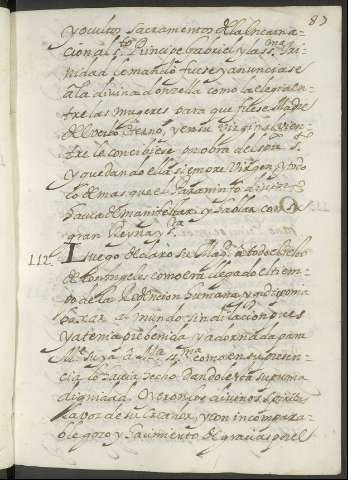 83
y ocultos sacramentos de la Encarna-
cion al S.to Principe Gabriel y la SS.ma Tri-
nidad le mando fuese y anunciase
a la divina donzella como la elegia en-
tre las mugeres para que fuese Madre
del Verbo Eterno, y en su Virginal vien-
tre le concibiese por obra del Spiritu S.to
y quedando ella siempre Virgen, y todo
lo demas que el Paraninfo divino
havia de manifestar y hablar con su
gran Reyna y S.ra
112. Luego declaro su Mag.d a todo el resto
de los angeles como era llegado el tiem-
po de la Redencion humana y q disponia
baxar al mundo sin dilacion pues
ya tenia prebenida y adornada para
M.e suya a Maria SS.ma como en su presen-
cia lo havia hecho dandole esta suprema
dignidad. Oyeron los divinos Spiritus
la voz de su Criador, y con incompara-
ble gozo y hacimiento de gracias por el